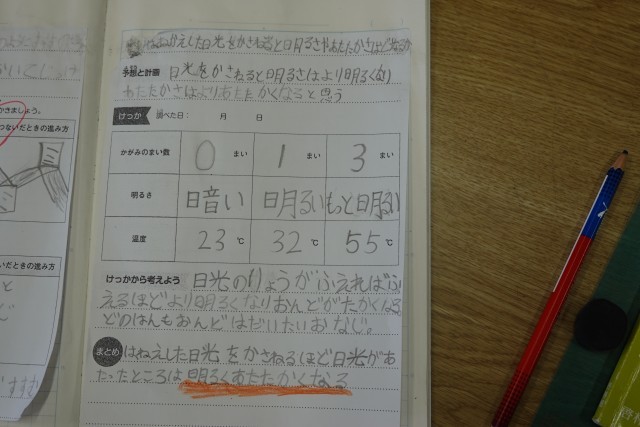 はねかえした日光をかさねると日明るさやあたたかさはどうなるか
予想と計画 日光をかさねると明るさはより明るくなり
あたたかさはよりあたたかくなると思う
けっか 調べた日： 月 日
かがみのまい数 0 まい 1 まい 3 まい
明るさ 暗い 明るい もっと明るい
温度 23 ℃ 32 ℃ 55 ℃
けっかから考えよう 日光のりょうがふえればふ
えるほどより明るくなりおんどがたかくなる
どのはんもおんどはだいたいおなじ。
まとめ はねえした日光をかさねるほど日光があ
たったところは明るくあたたかくなる
かきましょう。
つないだときの進み方
いだときの進み方